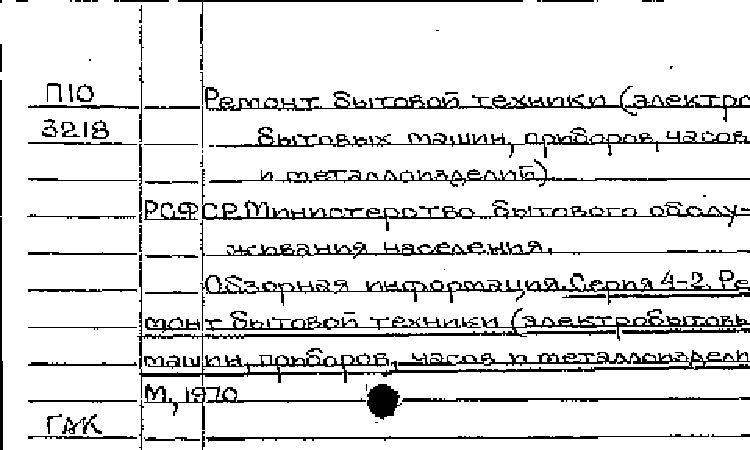 П10 Ремонт бытовой техники (электро
3218 бытовых машин, приборов, часов
и металлоизделий)
РСФСР. Министерство бытового обслу-
живания населения.
Обзорная информация. Серия 4-2. Ре
монт бытовой техники (электробытовы
машин, приборов, часов и металлоиздели
М., 1970
ГАК